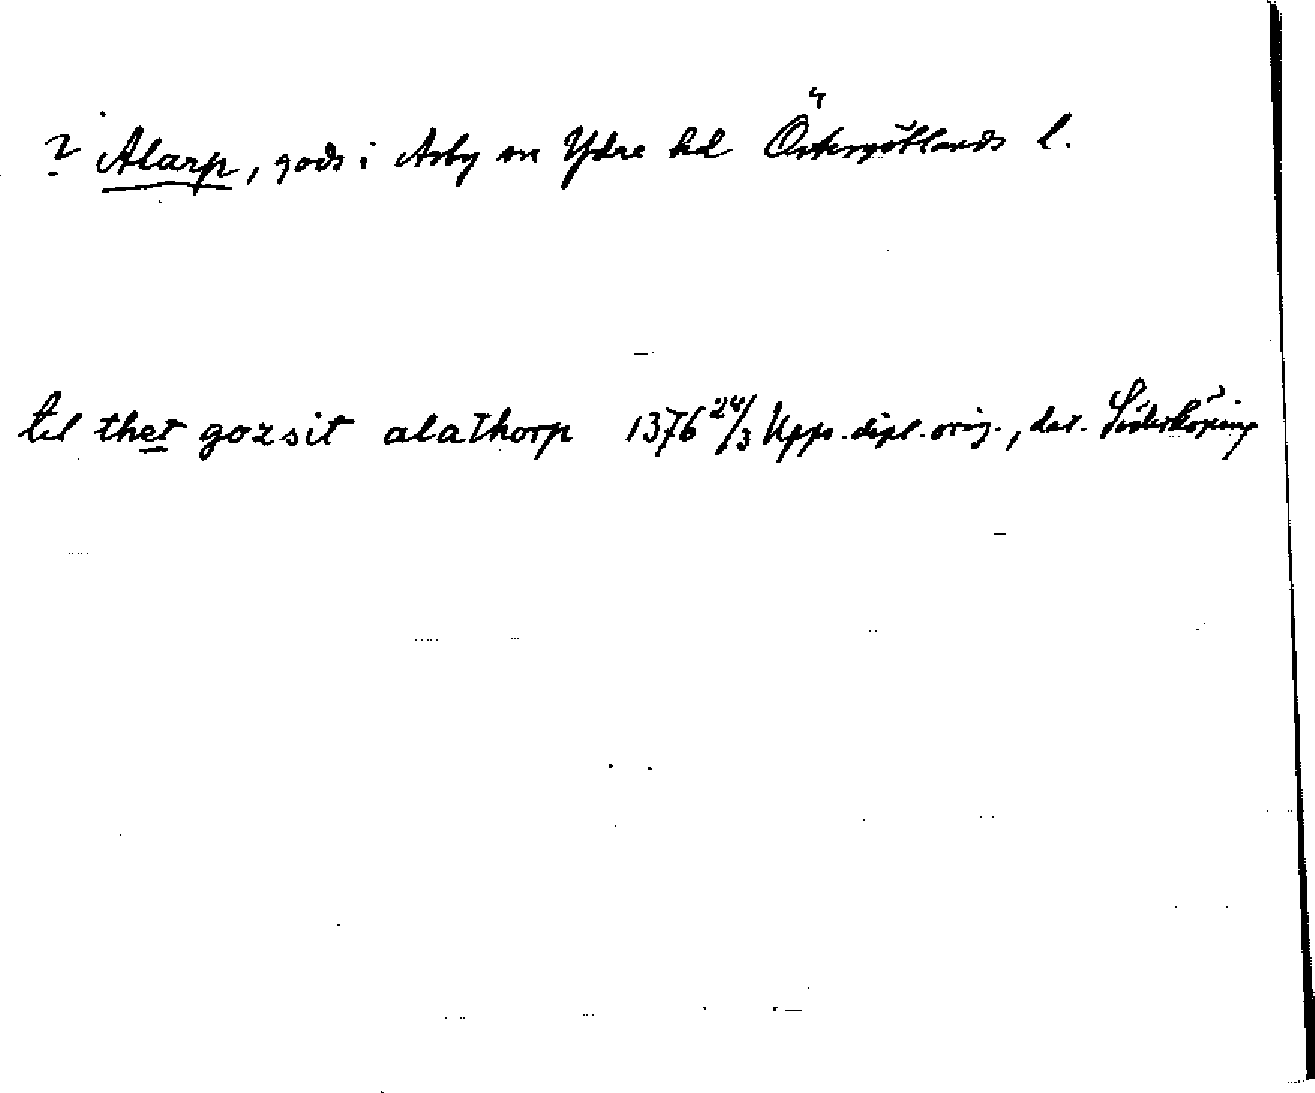 ? Alarp, gods i Asby sn Ydre hd Östergötlands l.
til thet gozsit alathorp 1376 24/3 Upps. dipl. orig., dat. Söderköping